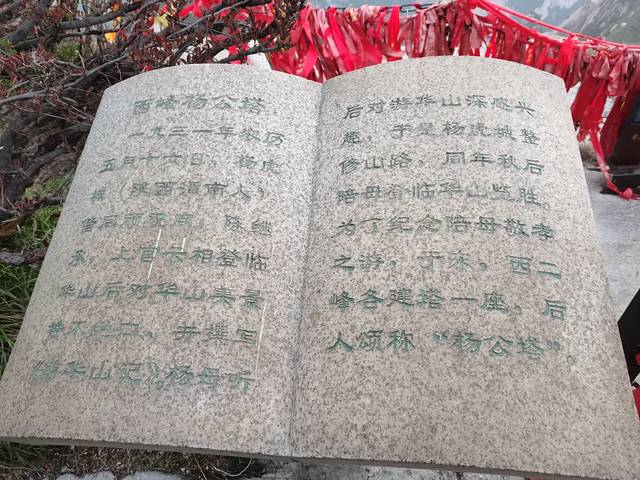 西峰杨公塔
一九三一年农历
五月十六日，杨虎
城（陕西渭南人）
偕同邵家同、陈继
承、上官六相登临
华山后对华山美景
赞不绝口，并撰写
《游华山记》，杨母听
后对游华山深感兴
趣，于是杨虎城整
修山路，同年秋后
陪母登临华山览胜。
为了纪念陪母敬孝
之游，于东，西二
峰各建塔一座，后
人颂称“杨公塔”。